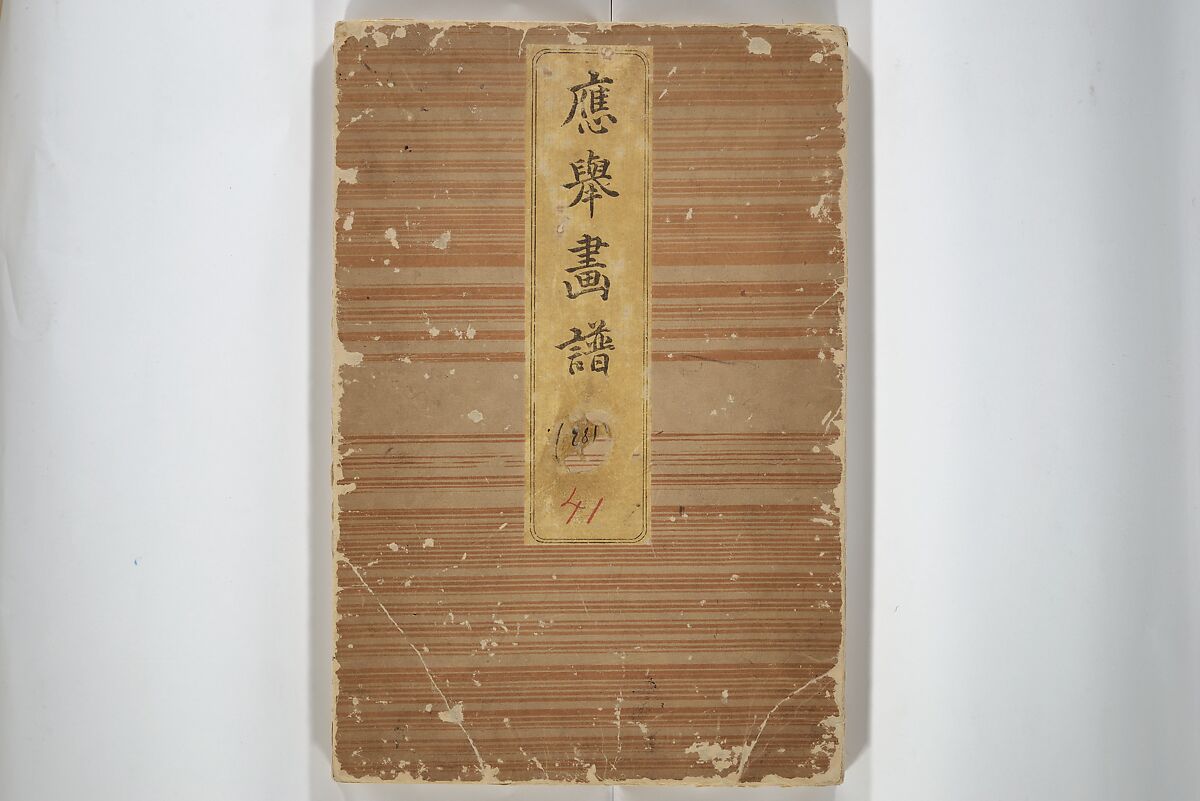 應舉畫譜
(281)
41